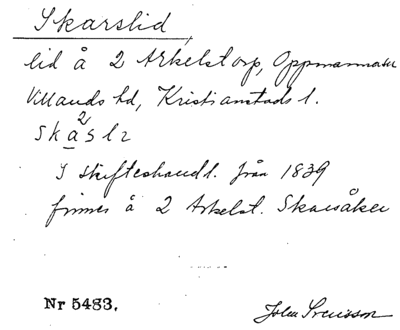 Skarslid,
lid å 2 Arkelstorp, Oppmanna sn
Villands hd, Kristianstads l.
skaslı
2
I skifteshandl. från 1839
finnes å 2 Arkelst. Skarsåker
Nr 5483. John Svensson